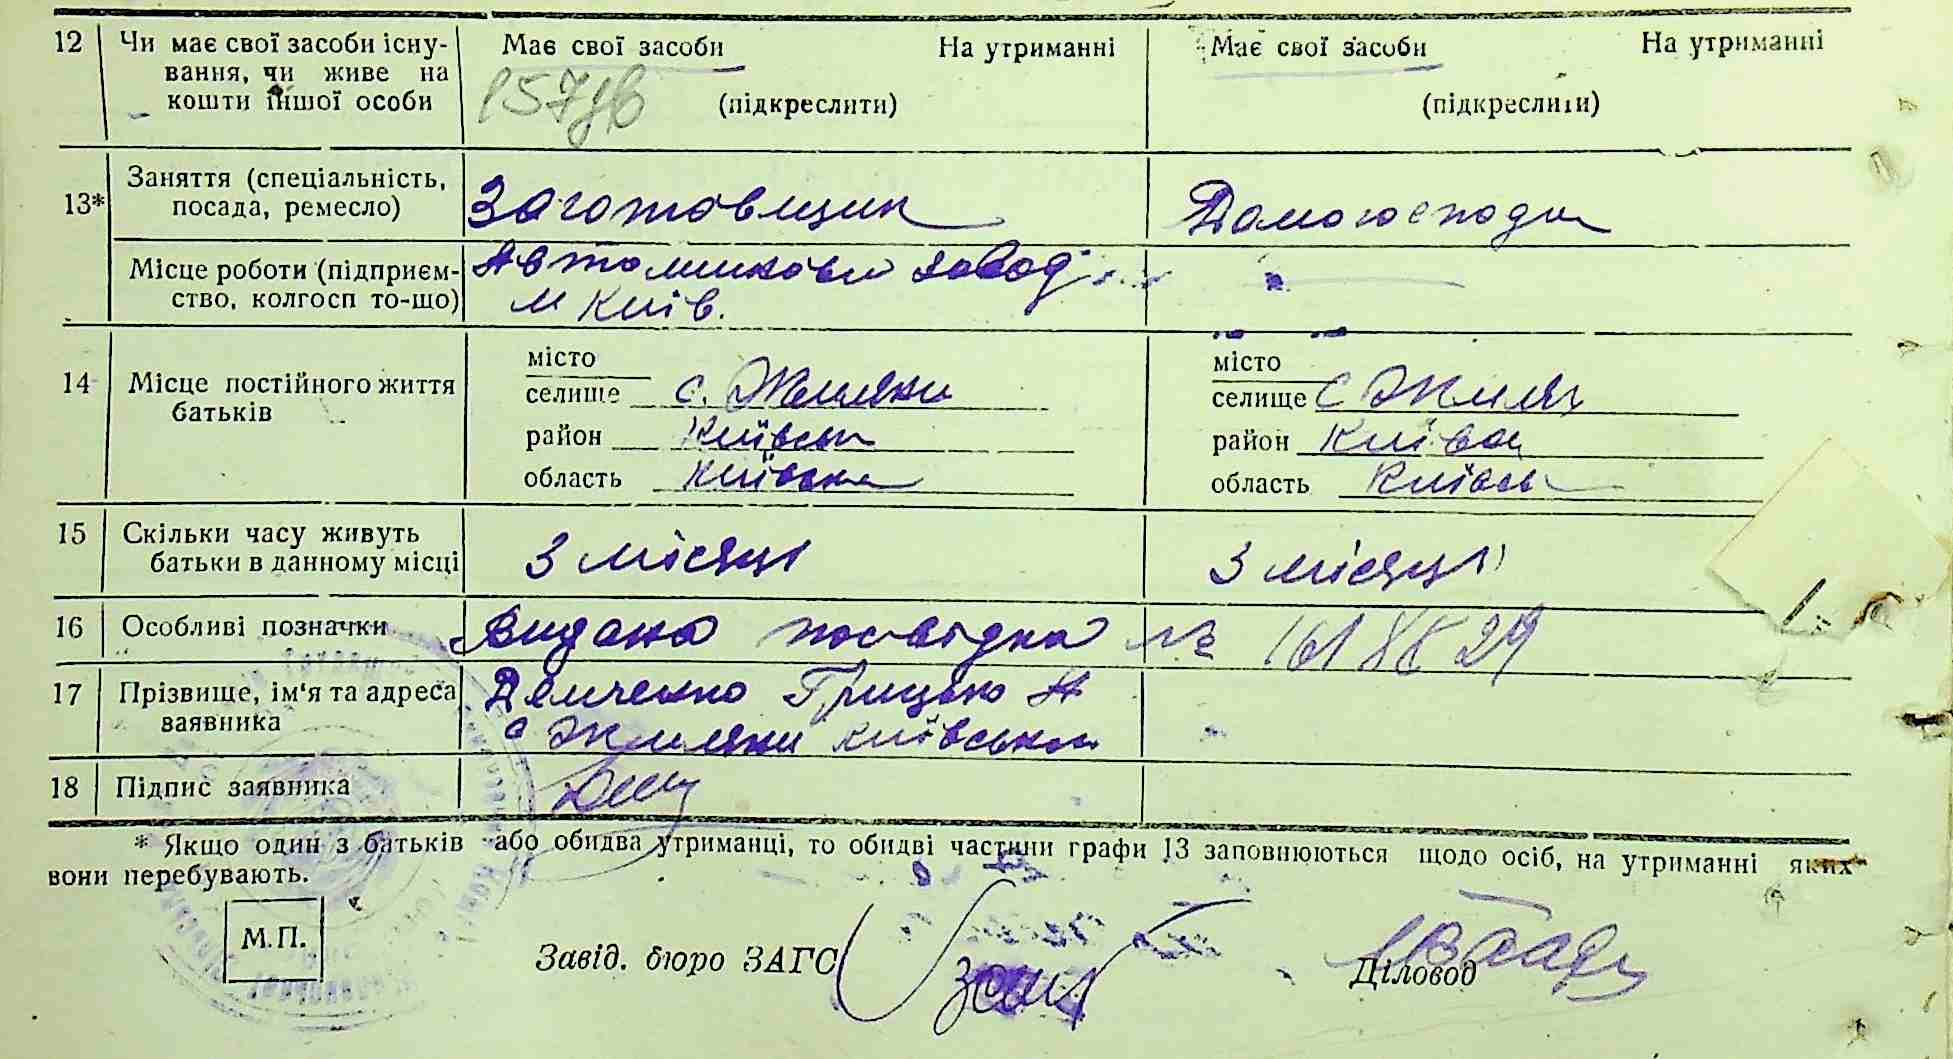 12 Чи має свої засоби існу- Має свої засоби На утриманні Має свої засоби На утриманні
вання, чи живе на
кошти іншої особи (підкреслити) (підкреслити)
Заняття (спеціальність,
13* посада, ремесло) Заготовщик Домогоспода
Місце роботи (підприєм- завод
ство, колгосп то-що) м Київ.
місто місто
14 Місце постійного життя селище с. Жиляни селище с Жилян
батьків район Київськ район Київ
область Київська область Київсь
15 Скільки часу живуть
батьки в данному місці 3 місяці 3 місяці
16 Особливі позначки Видана посвідка №
17 Прізвище, ім'я та адреса Демченко Грицько
заявника с Жиляни Київськ
18 Підпис заявника
* Якщо один з батьків або обидва утриманці, то обидві частини графи 13 заповнюються щодо осіб, на утриманні яких
вони перебувають.
М.П.
Завід. бюро ЗАГС Діловод